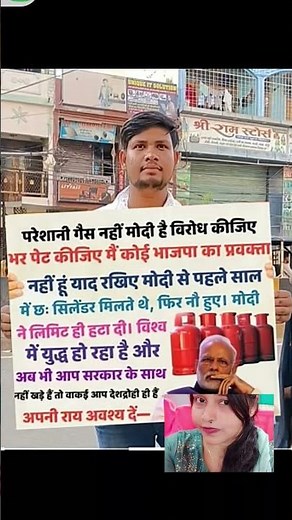 UNIQUE IT SOLUTION
श्री राम स्टोर्स
परेशानी गैस नहीं मोदी है विरोध कीजिए
भर पेट कीजिए मैं कोई भाजपा का प्रवक्ता
नहीं हूं याद रखिए मोदी से पहले साल
में छः सिलेंडर मिलते थे, फिर नौ हुए। मोदी
ने लिमिट ही हटा दी। विश्व
में युद्ध हो रहा है और
अब भी आप सरकार के साथ
नहीं खड़े हैं तो वाकई आप देशद्रोही ही हैं
अपनी राय अवश्य दें—